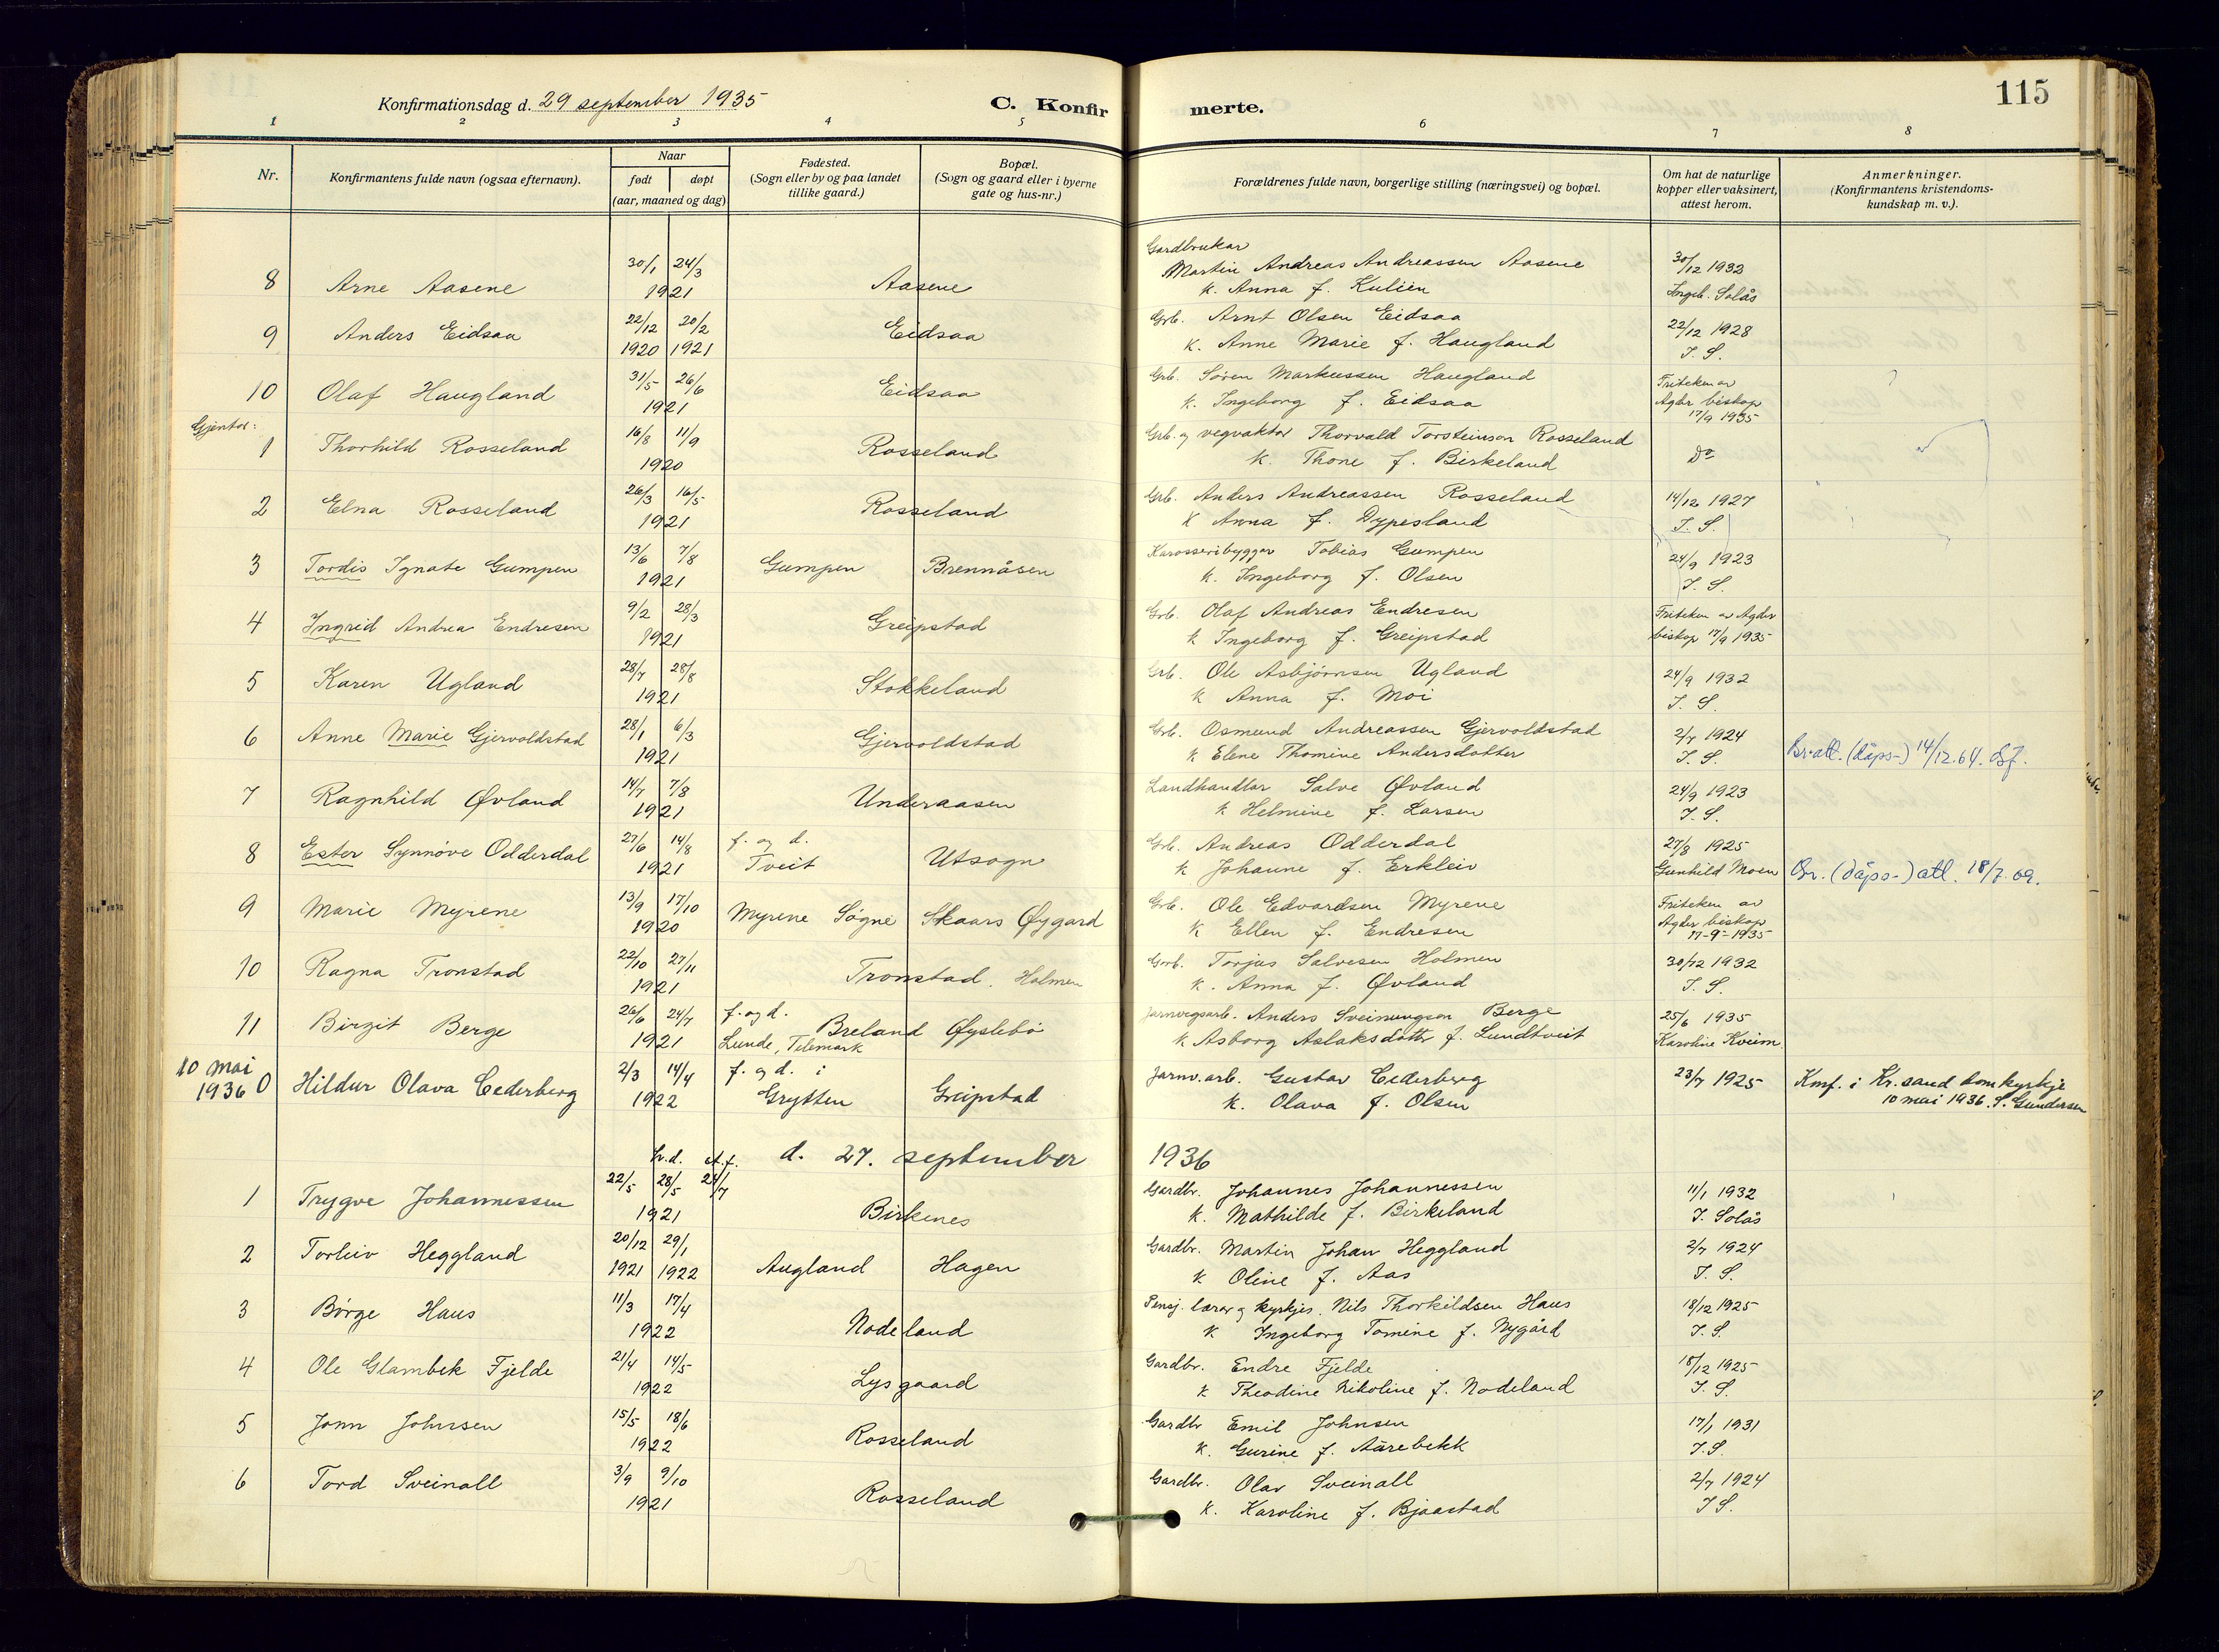 115
Konfirmationsdag d. 29 september 1935 C. Konfir merte.
1 2 3 4 5 6 7 8
Nr. Konfirmantens fulde navn (ogsaa efternavn). Naar født døpt (aar, maaned og dag) Fødested. (Sogn eller by og paa landet tillike gaard.) Bopæl. (Sogn og gaard eller i byerne gate og hus-nr.) Forældrenes fulde navn, borgerlige stilling (næringsvei) og bopæl. Om hat de naturlige kopper eller vaksinert, attest herom. Anmerkninger. (Konfirmantens kristendoms-kundskap m. v.).
8 Arne Aasene 30/1 24/3 1921 Aasene Gardbrukar Martin Andreas Andreassen Aasene 30/12 1932
k. Anna f. Kulien Ingeb. Solås
9 Anders Eidsaa 22/12 1920 20/2 1921 Eidsaa Grb. Arnt Olsen Eidsaa 22/12 1928
k. Anne Marie f. Haugland I. S.
10 Olaf Haugland 31/5 26/6 1921 Eidsaa Grb. Søren Markussen Haugland Friteken av
k. Ingeborg f. Eidsaa Agder biskop 17/9 1935
Gjentor:
1 Thorhild Rosseland 16/8 11/9 1920 Rosseland Grb. og vegvaktar Thorvald Torsteinson Rosseland Do
k. Thone f. Birkeland
2 Elna Rosseland 26/3 16/5 1921 Rosseland Grb. Anders Andreassen Rosseland 14/12 1927
k Anna f. Dypesland I. S.
3 Tordis Ignate Gumpen 13/6 7/8 1921 Gumpen Brennåsen Karosseribyggar Tobias Gumpen 24/9 1923
k. Ingeborg f. Olsen I. S.
4 Ingrid Andrea Endresen 9/2 28/3 1921 Greipstad Grb. Olaf Andreas Endresen Friteken av Agder
k Ingeborg f. Greipstad biskop 17/9 1935
5 Karen Ugland 28/7 28/8 1921 Stokkeland Grb. Ole Asbjørnsen Ugland 24/9 1932
k Anna f. Moi I. S.
6 Anne Marie Gjervoldstad 28/1 6/3 1921 Gjervoldstad Grb. Osmund Andreassen Gjervoldstad 2/7 1924
k Elene Thomine Andersdotter I. S. Br. att. (dåps-) 14/12.64.
7 Ragnhild Øvland 14/7 7/8 1921 Underaasen Landhandlar Salve Øvland 24/9 1923
k Helmine f. Larsen I. S.
8 Ester Synnøve Odderdal 27/6 14/8 1921 f. og d. Tveit Utsogn Grb. Andreas Odderdal 27/8 1925
k Johanne f. Erkleiv Gunhild Moen Br. (dåps-) att. 18/7.69.
9 Marie Myrene 13/9 17/10 1920 Myrene Søgne Skaars Øygard Grb. Ole Edvardsen Myrene Friteken av
k Ellen f. Endresen Agder biskop 17-9-1935
10 Ragna Tronstad 22/10 27/11 1921 Tronstad, Holmen Grb. Torjus Salvesen Holmen 30/12 1932
k. Anna f. Øvland I. S.
11 Birgit Berge 26/6 24/7 1921 f. og d. Lunde, Telemark Breland Øyslebø Jarnvegsarb. Anders Sveinungson Berge 25/6 1935
k Asborg Aslaksdotter f. Lundtveit Karoline Kveim.
10 mai 1936 0 Hildur Olava Cederberg 2/3 14/4 1922 f. og d. i Grytten Greipstad Jarnv.arb. Gustav Cederberg 23/7 1925 Kmf. i Kr.sand domkyrkje
k. Olava f. Olsen 10 mai 1936. S. Gundersen
h.d. st.f. d. 27. september 1936
1 Trygve Johannessen 22/5 28/5 24/7 1921 Birkenes Gardbr. Johannes Johannessen 11/1 1932
k. Mathilde f. Birkeland I. Solås
2 Torleiv Heggland 20/12 1921 29/1 1922 Augland Hagen Gardbr. Martin Johan Heggland 2/7 1924
k Oline f. Aas I. S.
3 Børge Haus 11/3 17/4 1922 Nodeland Pensj. lærar og kyrkjes. Nils Thorkildsen Haus 18/12 1925
k Ingeborg Tomine f. Nygård I. S.
4 Ole Glambek Fjelde 21/4 14/5 1922 Lysgaard Gardbr. Endre Fjelde 18/12 1925
k Theodine Nikoline f. Nodeland I. S.
5 Jonn Johnsen 15/5 18/6 1922 Rosseland Gardbr Emil Johnsen 17/1 1931
k. Gurine f. Aarebekk I. S.
6 Tord Sveinall 3/9 9/10 1921 Rosseland Gardbr. Olav Sveinall 2/7 1924
k. Karoline f. Bjaastad I S.